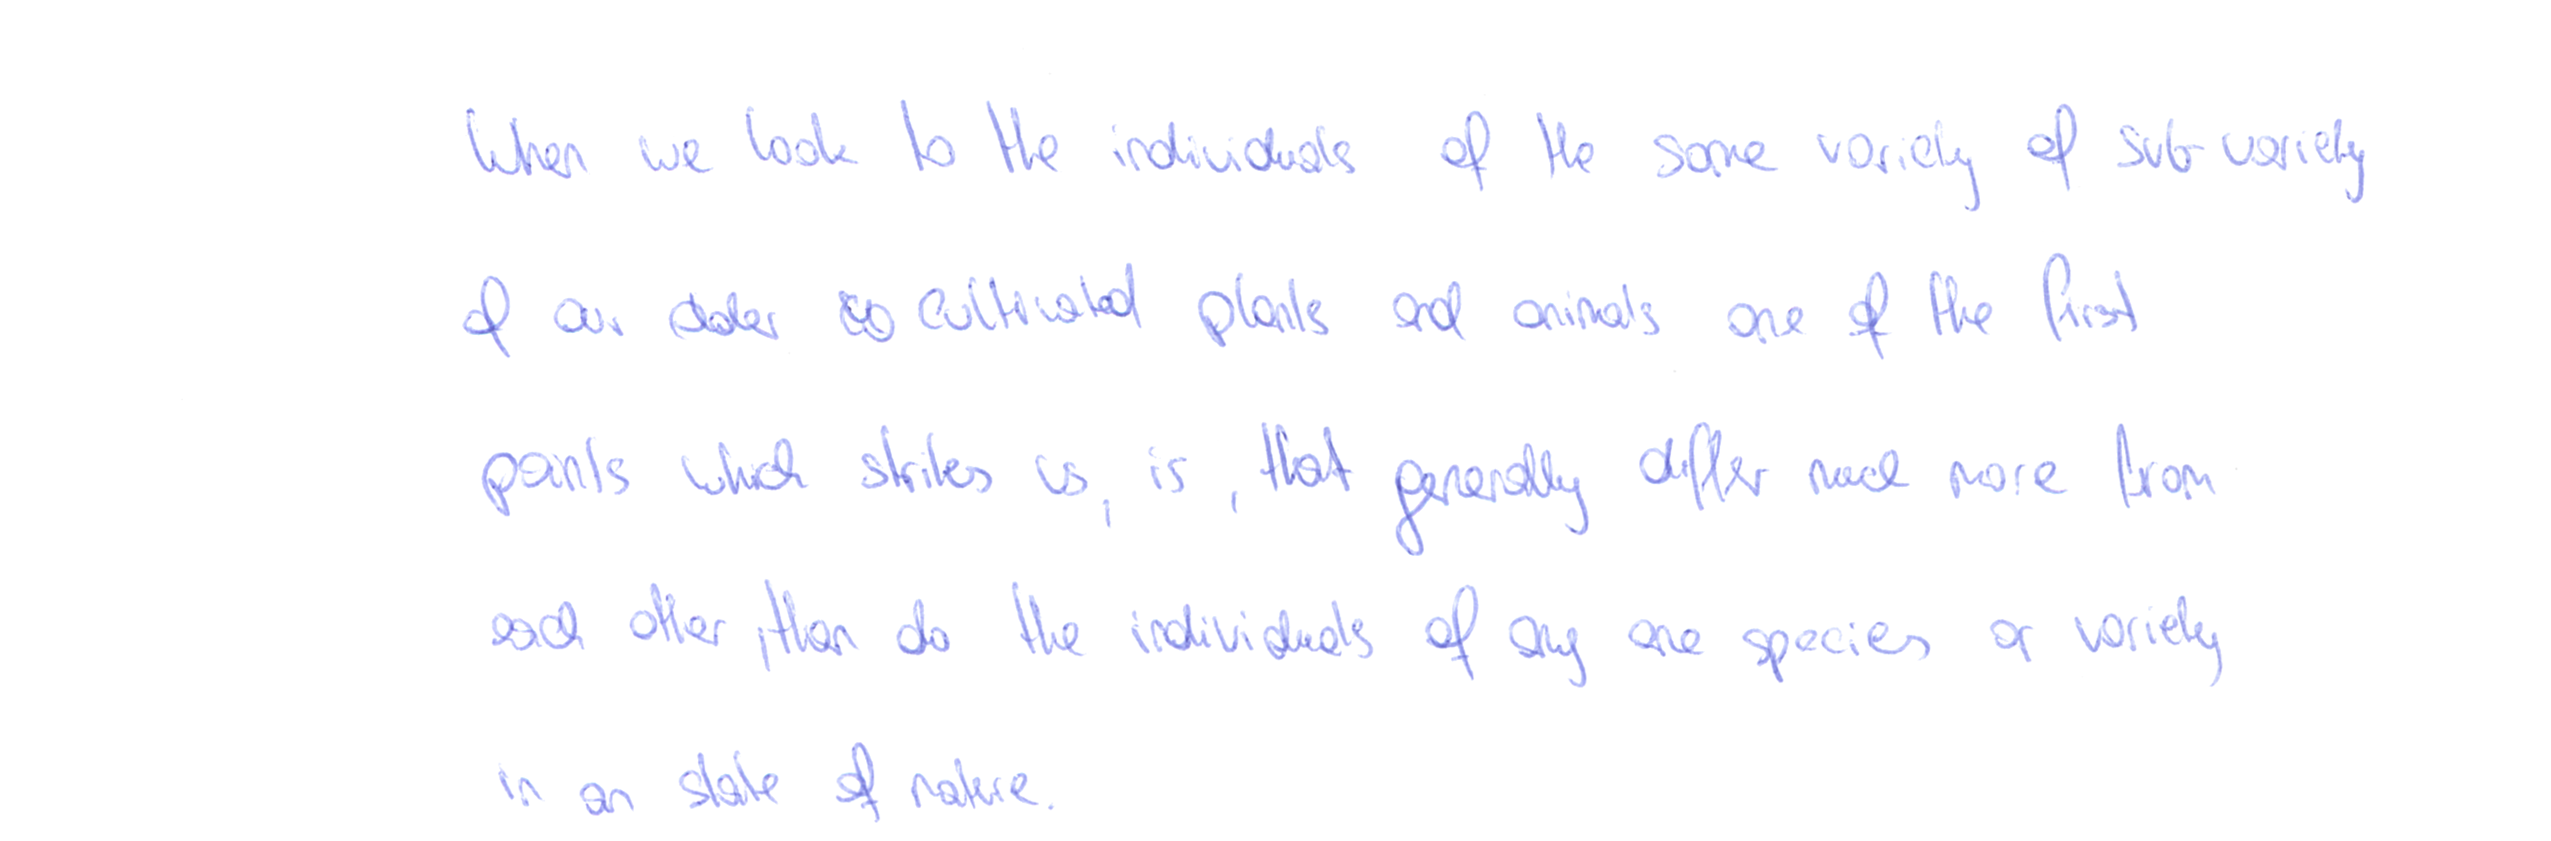 When we look to the individuals of the same variety of sub-variety
of our older cultivated plants and animals one of the first
points which strikes us, is, that generally differ much more from
each other, than do the individuals of any one species or variety
in an state of nature.